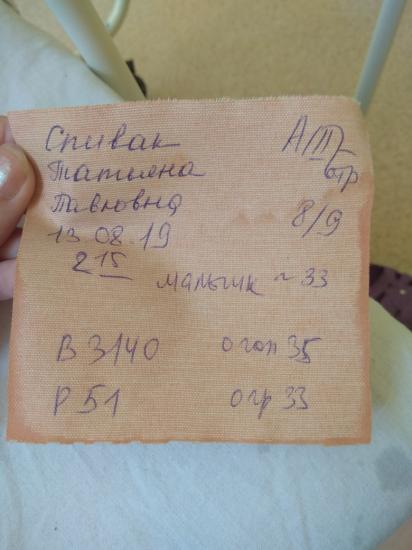 Спивак
Татьяна
Павловна
13.08.19
2 15
мальчик ~ 33
А(III)
отр
8/9
В 3140
о гол 35
Р 51
о гр 33